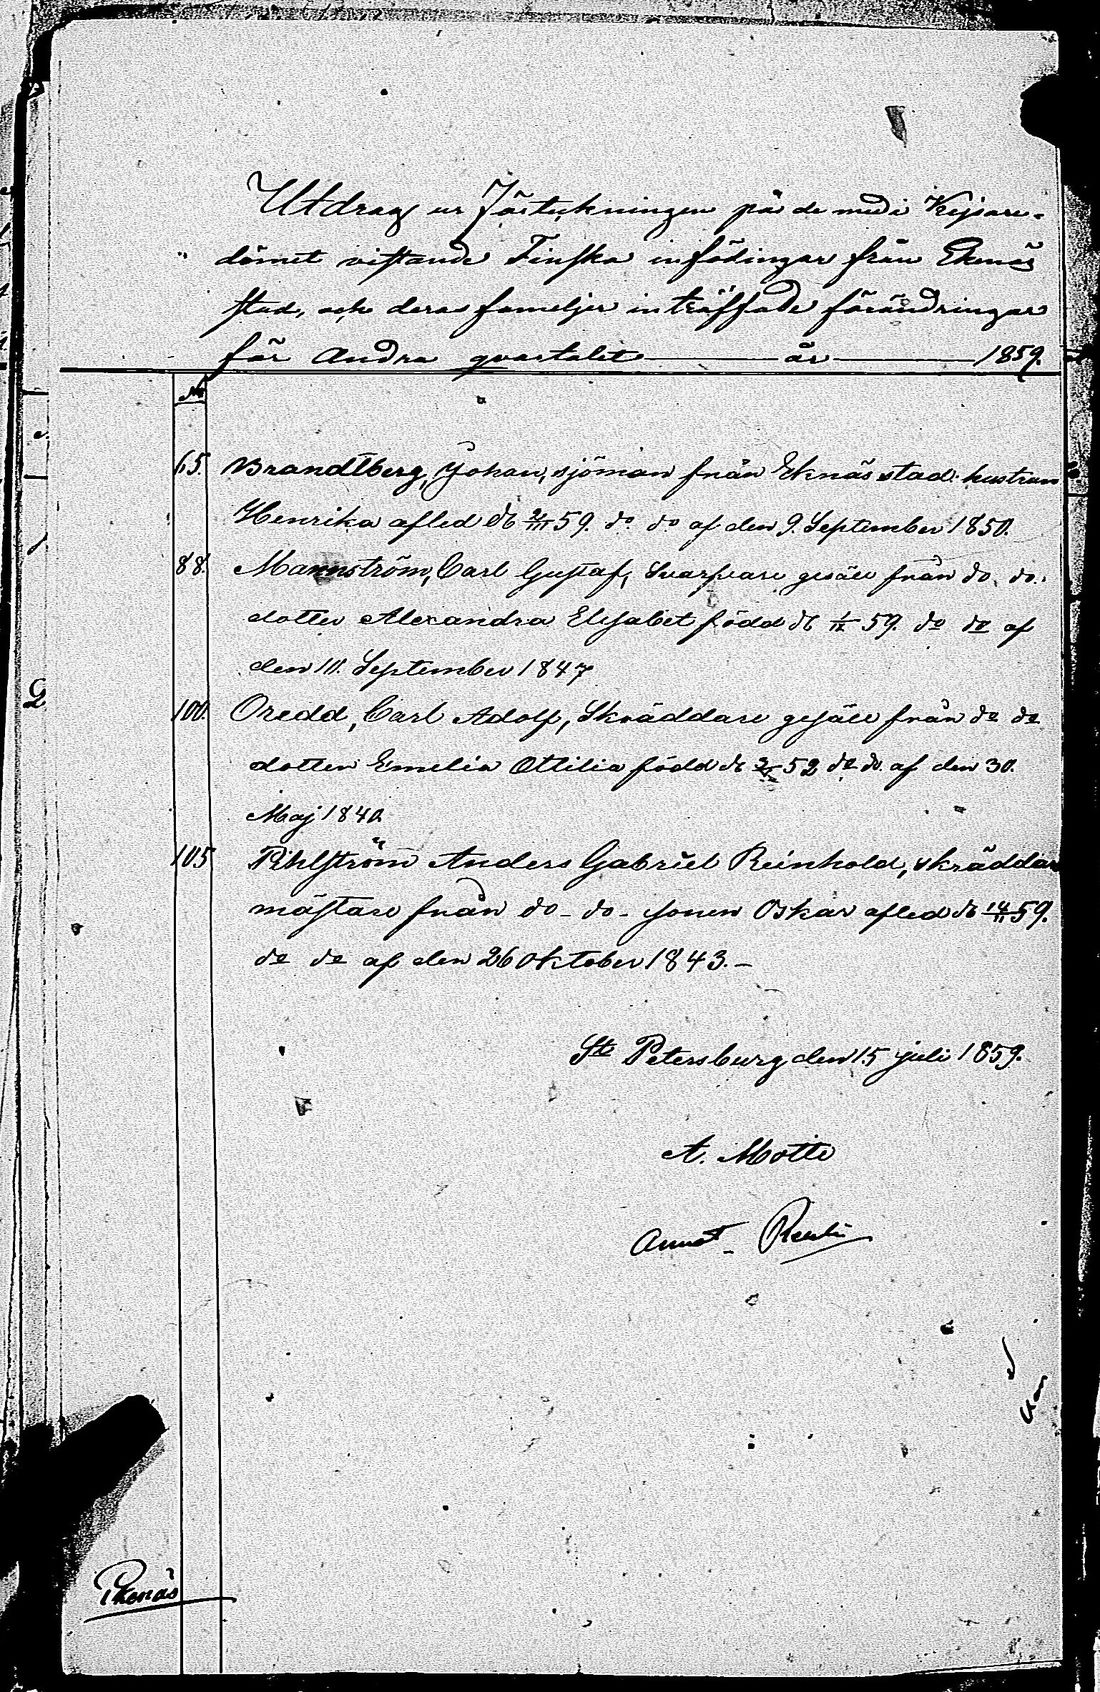 Utdrag ur Förtekningen på de med i Kejsare-
dömet vistande Finska infödingar från Ekenäs
stad, och deras fameljer inträffade förändringar
för Andra qvartalet år 1859.
No
65. Brandtberg, Johan, sjöman från Eknäs stad. hustrun
Henrika afled d 59. do do af den 9. September 1850.
88. Mannström, Carl Gustaf, Svarfvare gesäll från do. do.
dotter Alexandra Elisabet född d 59. do do af
den 10. September 1847
100. Oredd, Carl Adolf, Skräddare gesäll från do do
dotter Emelia Ottilia född d 52 do do. af den 30.
Maj 1840.
105 Pihlström Anders Gabriel Reinhold, skräddar
mästare från do - do - sonen Oskar afled d 14/ 59.
do do af den 26 Oktober 1843. -
St Petersburg den 15 juli 1859.
A. Motte
Ekenäs